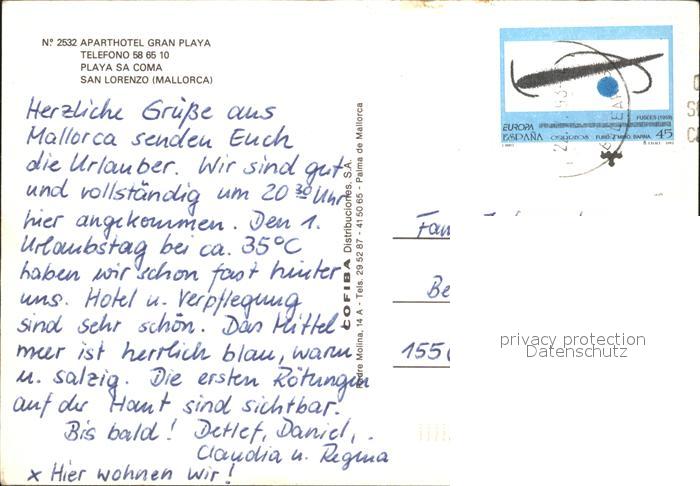 Nº 2532 APARTHOTEL GRAN PLAYA
TELEFONO 58 65 10
PLAYA SA COMA
SAN LORENZO (MALLORCA)
Herzliche Grüße aus
Mallorca senden Euch
die Urlauber. Wir sind gut
und vollständig um 20 30 Uhr
hier angekommen. Den 1.
Urlaubstag bei ca. 35°C
haben wir schon fast hinter
uns. Hotel u. Verpflegung
sind sehr schön. Das Mittel-
meer ist herrlich blau, warm
u. salzig. Die ersten Rötungen
auf der Haut sind sichtbar.
Bis bald! Detlef, Daniel,
Claudia u. Regina
x Hier wohnen wir!
COFIBA Distribuciones, S.A.
Padre Molina, 14 A - Tels. 29 52 87 - 41 50 65 - Palma de Mallorca
FUSEES (1959)
EUROPA
ESPAÑA
45
Fam
Be
155
privacy protection
Datenschutz